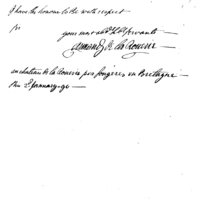 I have the honour to be with respect
Sir
your most obdt Hble Servant
Armand de la Rouerie
au chateau de la Rouerie pres fougeres en Bretagne
the 2d january 90